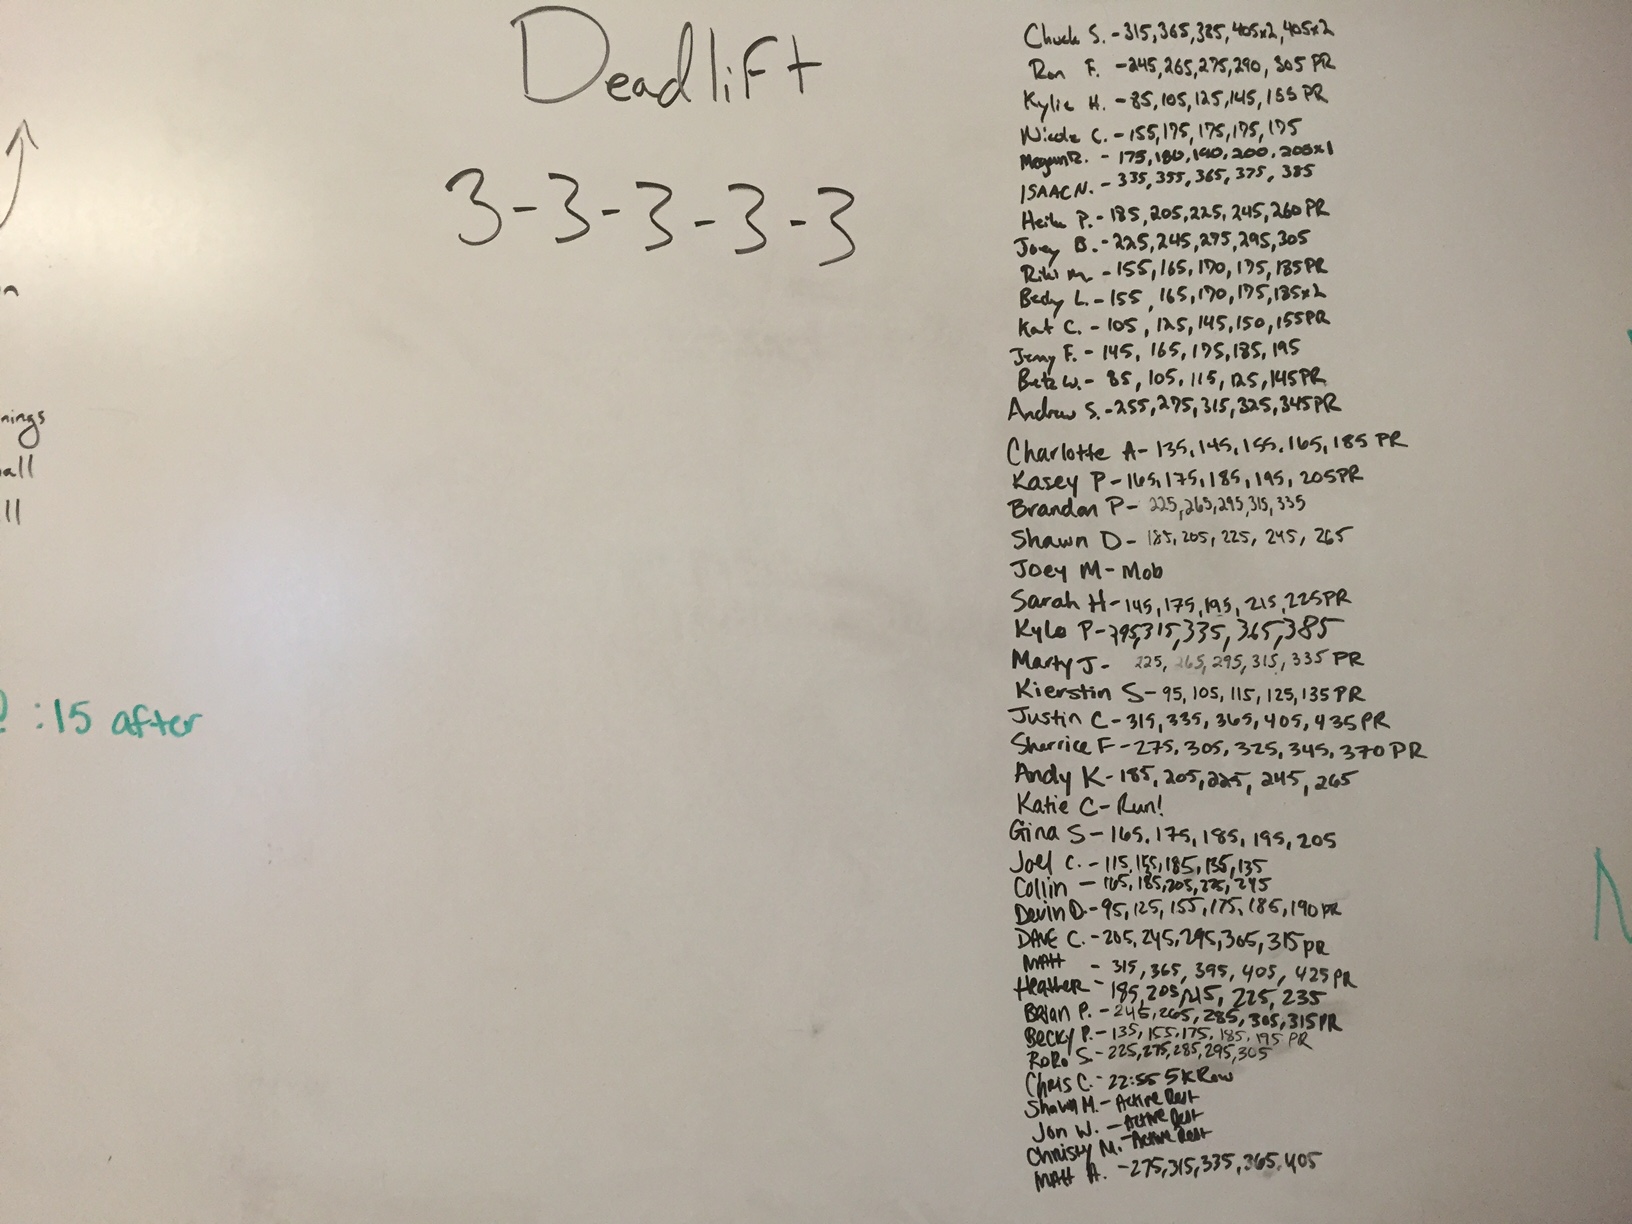 Deadlift
3-3-3-3-3
nings
all
ll
:15 after
Chuck S. - 315, 365, 385, 405x2, 405x2
Ron F. - 245, 265, 275, 290, 305 PR
Kylie H. - 85, 105, 125, 145, 155 PR
Nicole C. - 155, 175, 175, 175, 175
Megan R. - 175, 180, 190, 200, 205x1
ISAAC N. - 335, 355, 365, 375, 385
P. - 185, 205, 225, 245, 260 PR
Joey B. - 225, 245, 275, 295, 305
M. - 155, 165, 170, 175, 185 PR
Becky L. - 155, 165, 170, 175, 185x2
Kat C. - 105, 125, 145, 150, 155 PR
Jenny F. - 145, 165, 175, 185, 195
W. - 85, 105, 115, 125, 145 PR
Andrew S. - 255, 275, 315, 325, 345 PR
Charlotte A - 135, 145, 155, 165, 185 PR
Kasey P - 165, 175, 185, 195, 205 PR
Brandon P - 225, 265, 295, 315, 335
Shawn D - 185, 205, 225, 245, 265
Joey M - Mob
Sarah H - 145, 175, 195, 215, 225 PR
Kyle P - 295, 315, 335, 365, 385
Marty J - 225, 265, 295, 315, 335 PR
Kierstin S - 95, 105, 115, 125, 135 PR
Justin C - 315, 335, 365, 405, 435 PR
Sherrice F - 275, 305, 325, 345, 370 PR
Andy K - 185, 205, 225, 245, 265
Katie C - Run!
Gina S - 165, 175, 185, 195, 205
Joel C. - 115, 155, 185, 135, 135
Collin - 165, 185, 205, 225, 245
Devin D. - 95, 125, 155, 175, 185, 190 PR
DAVE C. - 205, 245, 295, 305, 315 PR
MATT - 315, 365, 395, 405, 425 PR
HEATHER - 185, 205, 215, 225, 235
BRIAN P. - 245, 265, 285, 305, 315 PR
BECKY P. - 135, 155, 175, 185, 195 PR
RORO S. - 225, 275, 285, 295, 305
Chris C. - 22:55 5K Row
Shawn M. - Active Rest
Jon W. - Active Rest
Christy M. - Active Rest
MATT A. - 275, 315, 335, 365, 405